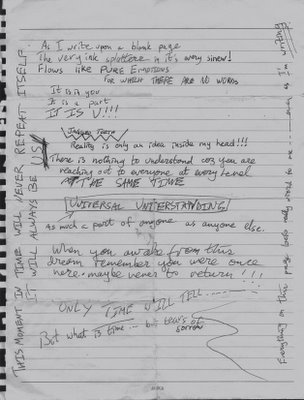 As I write upon a blank page
The very ink splatters in it's every sinew!
Flows like PURE EMOTIONS
FOR WHICH THERE ARE NO WORDS
It is is you
It is a part
IT IS U!!!
Reality is only an idea inside my head!!!
There is nothing to understand coz you are
reaching out to everyone at every level
AT THE SAME TIME
UNIVERSAL UNDERSTANDING
As much a part of anyone as anyone else.
When you awake from this
dream remember you were once
here. maybe never to return!!!
ONLY TIME WILL TELL
But what is time... but tears of
sorrow
THIS MOMENT IN TIME WILL NEVER REPEAT ITSELF
IT WILL ALWAYS BE US
Everything on this
I'm writing